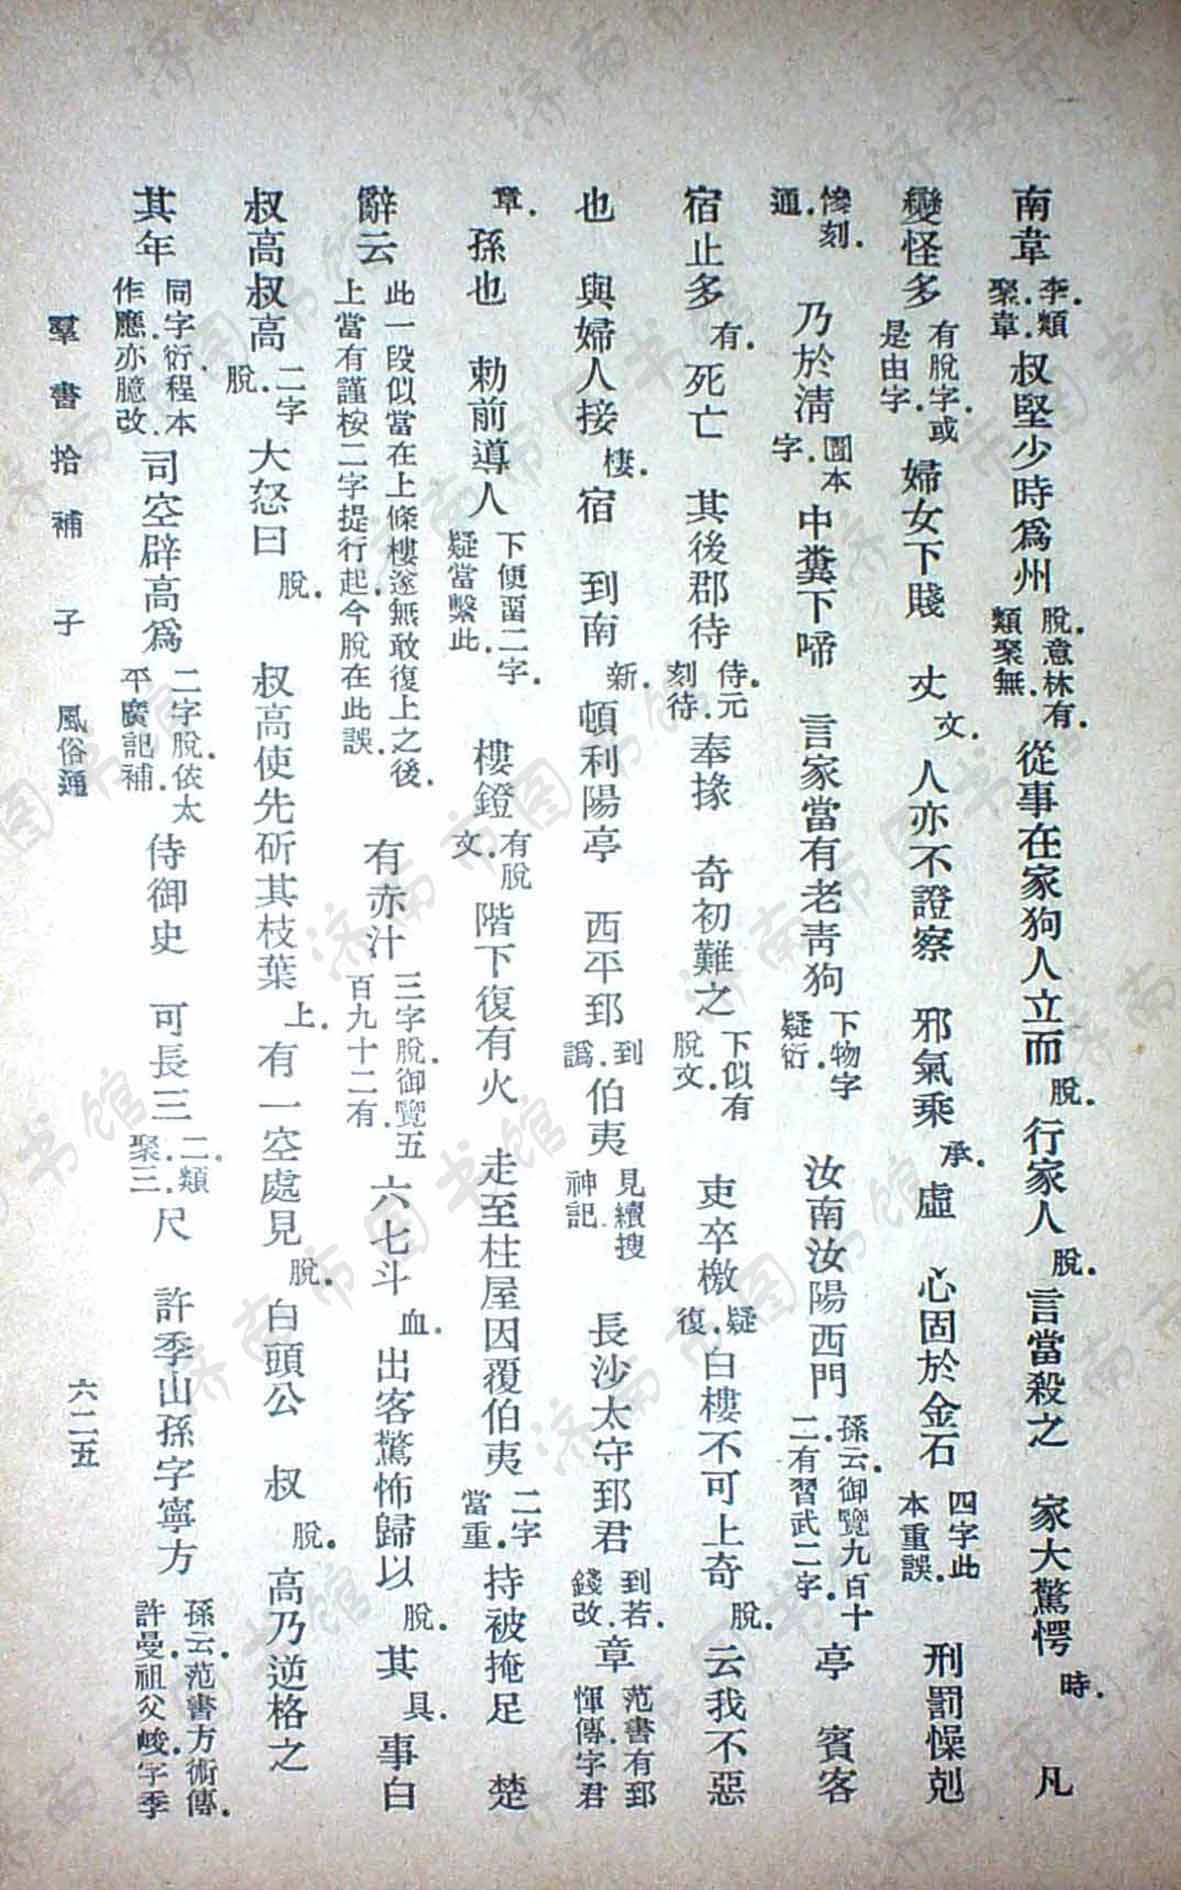 南韋李。類聚。韋。叔堅少時爲州脫。意林有。類聚無。從事在家狗人立而脫。行家人脫。言當殺之　家大驚愕時。　凡
變怪多有脫字。或是由字。婦女下賤　㚘文。人亦不證察　邪氣乘承。虛　心固於金石四字此本重誤。　刑罰懆剋
慘刻。通。　乃於淸圊本字。中糞下啼　言家當有老靑狗下物字疑衍。　汝南汝陽西門孫云。御覽九百十二。有習武二字。亭　賓客
宿止多有。死亡　其後郡待侍。元刻待。奉掾　奇初難之下似有脫文。　吏卒檄疑復。白樓不可上奇脫。云我不惡
也　與婦人接棲。宿　到南新。頓利陽亭　西平郅到譌。伯夷見續搜神記。　長沙太守郅君到若。錢改。章范書有郅惲傳。字君
章。孫也　勅前導人下便畱二字。疑當繫此。　樓鐙有脫文。階下復有火　走至柱屋因覆伯夷二字當重。持被掩足　楚
辭云此一段似當在上條樓遂無敢復上之後。上當有謹桉二字提行起。今脫在此誤。　有赤汁三字脫。御覽五百九十二有。六七斗血。出客驚怖歸以脫。其具。事白
叔高叔高二字脫。大怒曰脫。　叔高使先斫其枝葉上。有一空處見脫。白頭公　叔脫。高乃逆格之
其年同字衍。程本作應。亦臆改。司空辟高爲二字脫。依太平廣記補。侍御史　可長三二。類聚。三。尺　許季山孫字寧方孫云。范書方術傳。許曼。祖父峻。字季
羣書拾補　子　風俗通　六二五